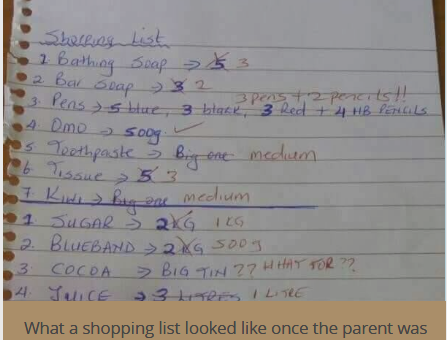 Shopping List
1 Bathing Soap → 5 3
2 Bar Soap → 3 2
3 pens + 2 pencils!!
3. Pens → 5 blue, 3 black, 3 Red + 4 HB PENCILS
4. OMO → 500g ✓
5 Toothpaste → Big one medium
6. Tissue → 5 3
7. Kiwi → Big one medium
1 SUGAR → 2KG 1KG
2. BLUEBAND → 2KG 500g
3 COCOA → BIG TIN ?? WHAT FOR??
4. JUICE → 3 LITRES 1 LITRE
What a shopping list looked like once the parent was